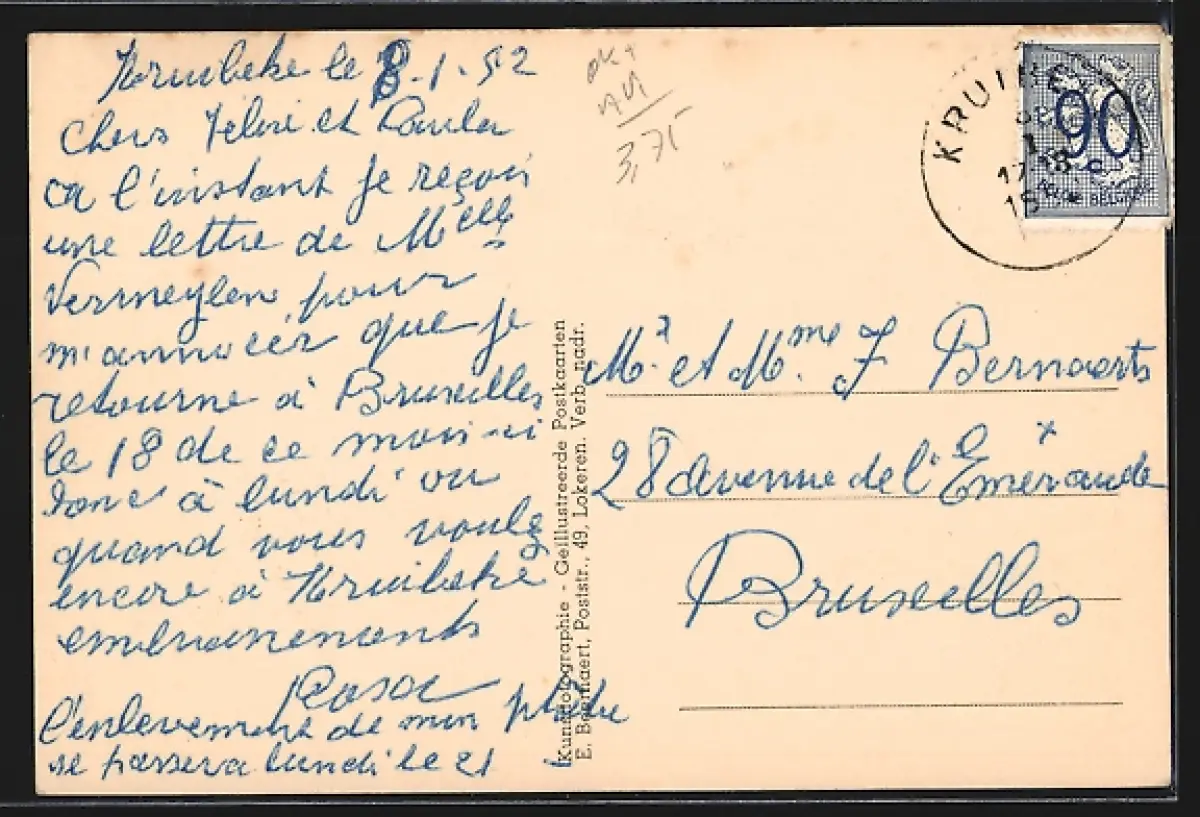 Kruibeke le 8-1-52
Chers Felix et Paula
a l'instant je reçois
une lettre de Melle
Vermeylen pour
m'annocér que je
retourne à Bruxelles
le 18 de ce mois-ci
donc à lundi ou
quand vous voulez
encore à Kruibeke
embrassements
Rosa
l'enlevement de mon plâtre
se passera lundi le 21
Kunstfotographie - Geïllustreerde Postkaarten
E. Beernaert, Poststr., 49, Lokeren. Verb. nadr.
3,75
KRUIBE
17-18
90
BELGIQUE
Mr. et Mme. F Bernaerts
28 avenue de l'Emeraude
Bruxelles